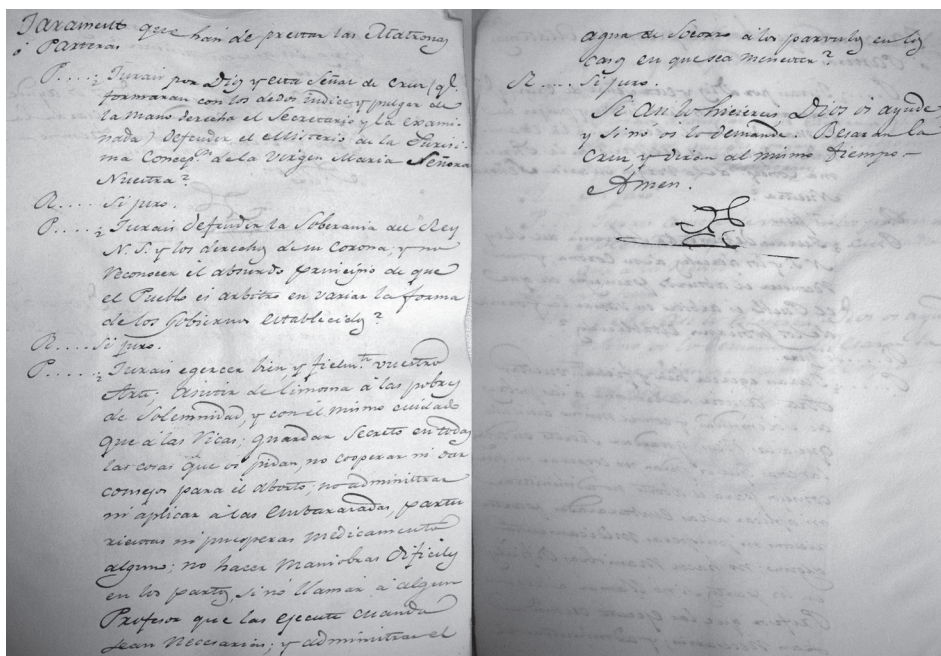 Juramento que han de prestar las Matronas
ó Parteras
P....¿ Jurais por Dios y esta Señal de Cruz (qe.
formaran con los dedos indice, y pulger de
la mano derecha el Secretario y la exami-
nada) defender el Misterio de la Purisi-
ma Concepn. de la Virgen Maria Señora
Nuestra?
R.... Si juro.
P....¿ Jurais defender la Soberania del Rey
N. S. y los derechos de su Corona, y no
reconocer el absurdo principio de que
el Pueblo es arbitro en variar la forma
de los Gobiernos establecidos?
R.... Si juro.
P....¿ Jurais egercer bien y fielmte. vuestro
Arte; asistir de limosna a las pobres
de Solemnidad, y con el mismo cuidado
que a las Ricas; guardar Secreto en todas
las cosas que os pidan, no cooperar ni dar
consejos para el aborto; no administrar
ni aplicar á las embarazadas, partu
rientas ni puerperas medicamento
alguno; no hacer maniobras dificiles
en los partos, si nó llamar á algun
Profesor que las ejecute cuando
sean necesarias; y administrar el
agua de Socorro a los parvulos en los
casos en que sea menester?
R.... Si juro.
Si asi lo hiciereis Dios os ayude
y Sino os lo demande. Besarán la
Cruz, y dirán al mismo tiempo-
Amen.